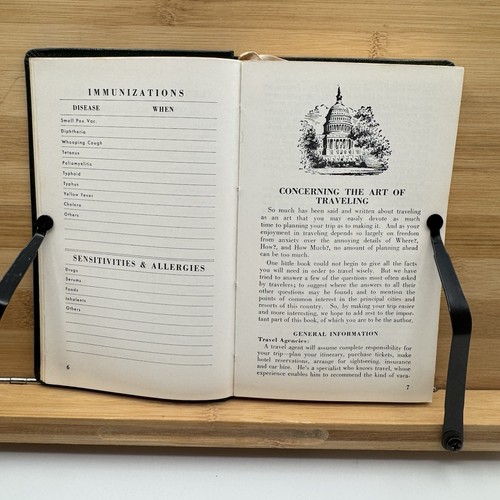 IMMUNIZATIONS
DISEASE WHEN
Small Pox Vac.
Diphtheria
Whooping Cough
Tetanus
Poliomyelitis
Typhoid
Typhus
Yellow Fever
Cholera
Others
SENSITIVITIES & ALLERGIES
Drugs
Serums
Foods
Inhalants
Others
6
CONCERNING THE ART OF
TRAVELING
So much has been said and written about traveling
as an art that you may easily devote as much
time to planning your trip as to making it. And as your
enjoyment in traveling depends so largely on freedom
from anxiety over the annoying details of Where?,
How?, and How Much?, no amount of planning ahead
can be too much.
One little book could not begin to give all the facts
you will need in order to travel wisely. But we have
tried to answer a few of the questions most often asked
by travelers; to suggest where the answers to all their
other questions may be found; and to mention the
points of common interest in the principal cities and
resorts of this country. So, by making your trip easier
and more interesting, we hope to add zest to the impor-
tant part of this book, of which you are to be the author.
GENERAL INFORMATION
Travel Agencies:
A travel agent will assume complete responsibility for
your trip—plan your itinerary, purchase tickets, make
hotel reservations, arrange for sightseeing, insurance
and car hire. He's a specialist who knows travel, whose
experience enables him to recommend the kind of vaca-
7